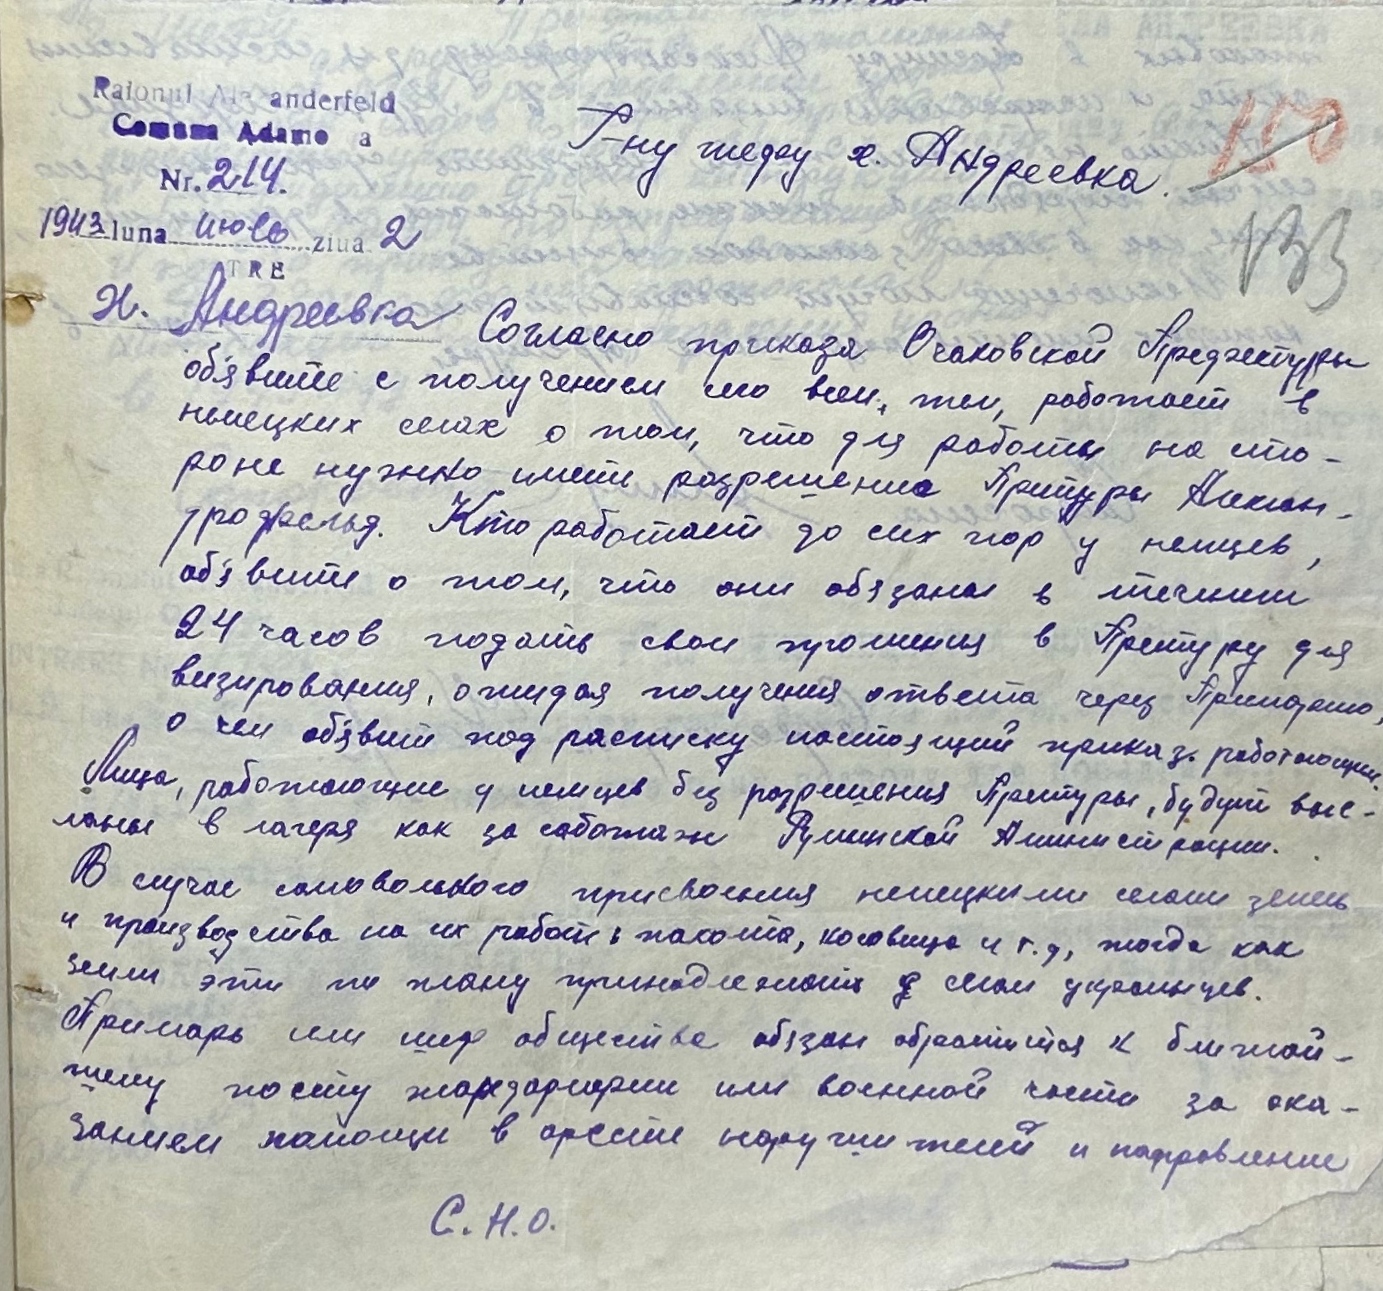 Raionul Al anderfeld
Comuna Adamo a
Nr. 214.
1943 luna июль ziua 2
TRE
Г-ну шефу х. Андреевка.
150
133
х. Андреевка Согласно приказа Очаковской Префектуры
об'явите с получением сего всем, кто работает в
немецких селах о том, что для работы на сто-
роне нужно иметь разрешение Претуры Алексан-
дрофельд. Кто работает до сих пор у немцев,
об'явите о том, что они обязаны в течении
24 часов подать свои прошения в Претуру для
визирования, ожидая получения ответа через Примарию,
о чем об'явите под расписку настоящий приказ работающим.
Лица, работающие у немцев без разрешения Претуры, будут выс-
ланы в лагеря как за саботаж Румынской Администрации.
В случае самовольного присвоения немецкими селами земель
и производства на их работ: пахота, косовица и т.д, тогда как
земли эти по плану принадлежат селам украинцев.
Примарь или шеф общества обязан обратится к ближай-
шему посту жандармерии или военной части за ока-
занием помощи в аресте нарушителей и направление
С.Н.О.